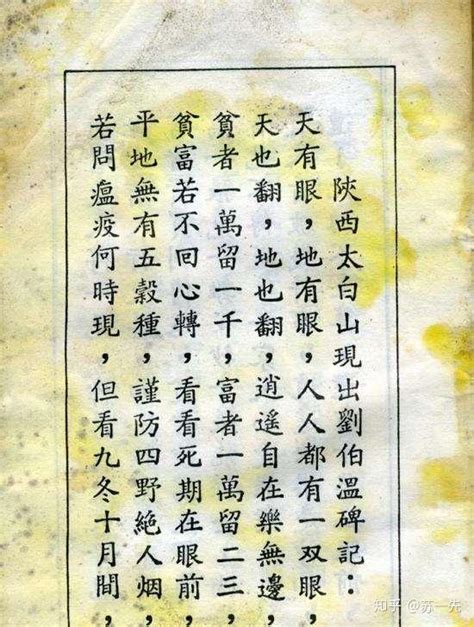 陝西太白山現出劉伯溫碑記：
天有眼，地有眼，人人都有一双眼，
天也翻，地也翻，逍遥自在樂無邊，
貧者一萬留一千，富者一萬留二三，
貧富若不回心轉，看看死期在眼前，
平地無有五穀種，謹防四野絶人烟，
若問瘟疫何時現，但看九冬十月間，
知乎 @苏一先